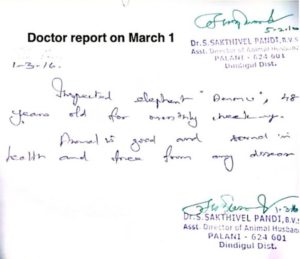 5-2-16
Dr.S. SAKTHIVEL PANDI, B.V.S
Asst. Director of Animal Husban
PALANI - 624 601
Dindigul Dist.
Doctor report on March 1
1-3-16.
Inspected elephant 48
years old for monthly checking.
Animal is good and sound in
health and free from any disease
1-3-16
Dr.S. SAKTHIVEL PANDI, B.V.S
Asst. Director of Animal Husband
PALANI - 624 601
Dindigul Dist.